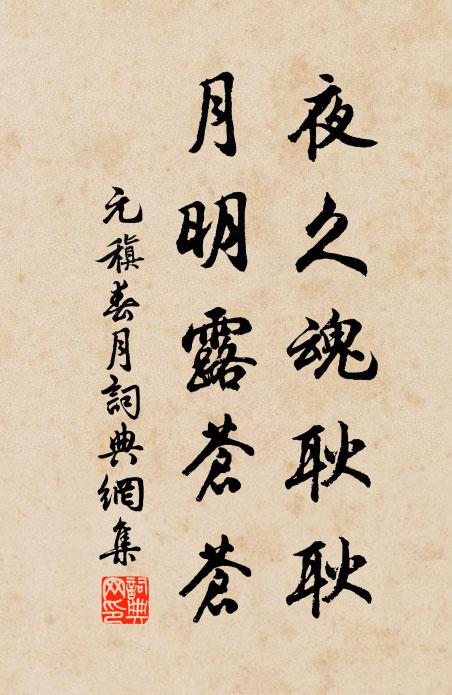 夜久魂耿耿
月明露蒼蒼
元稹春月詞典網集
詞典網印